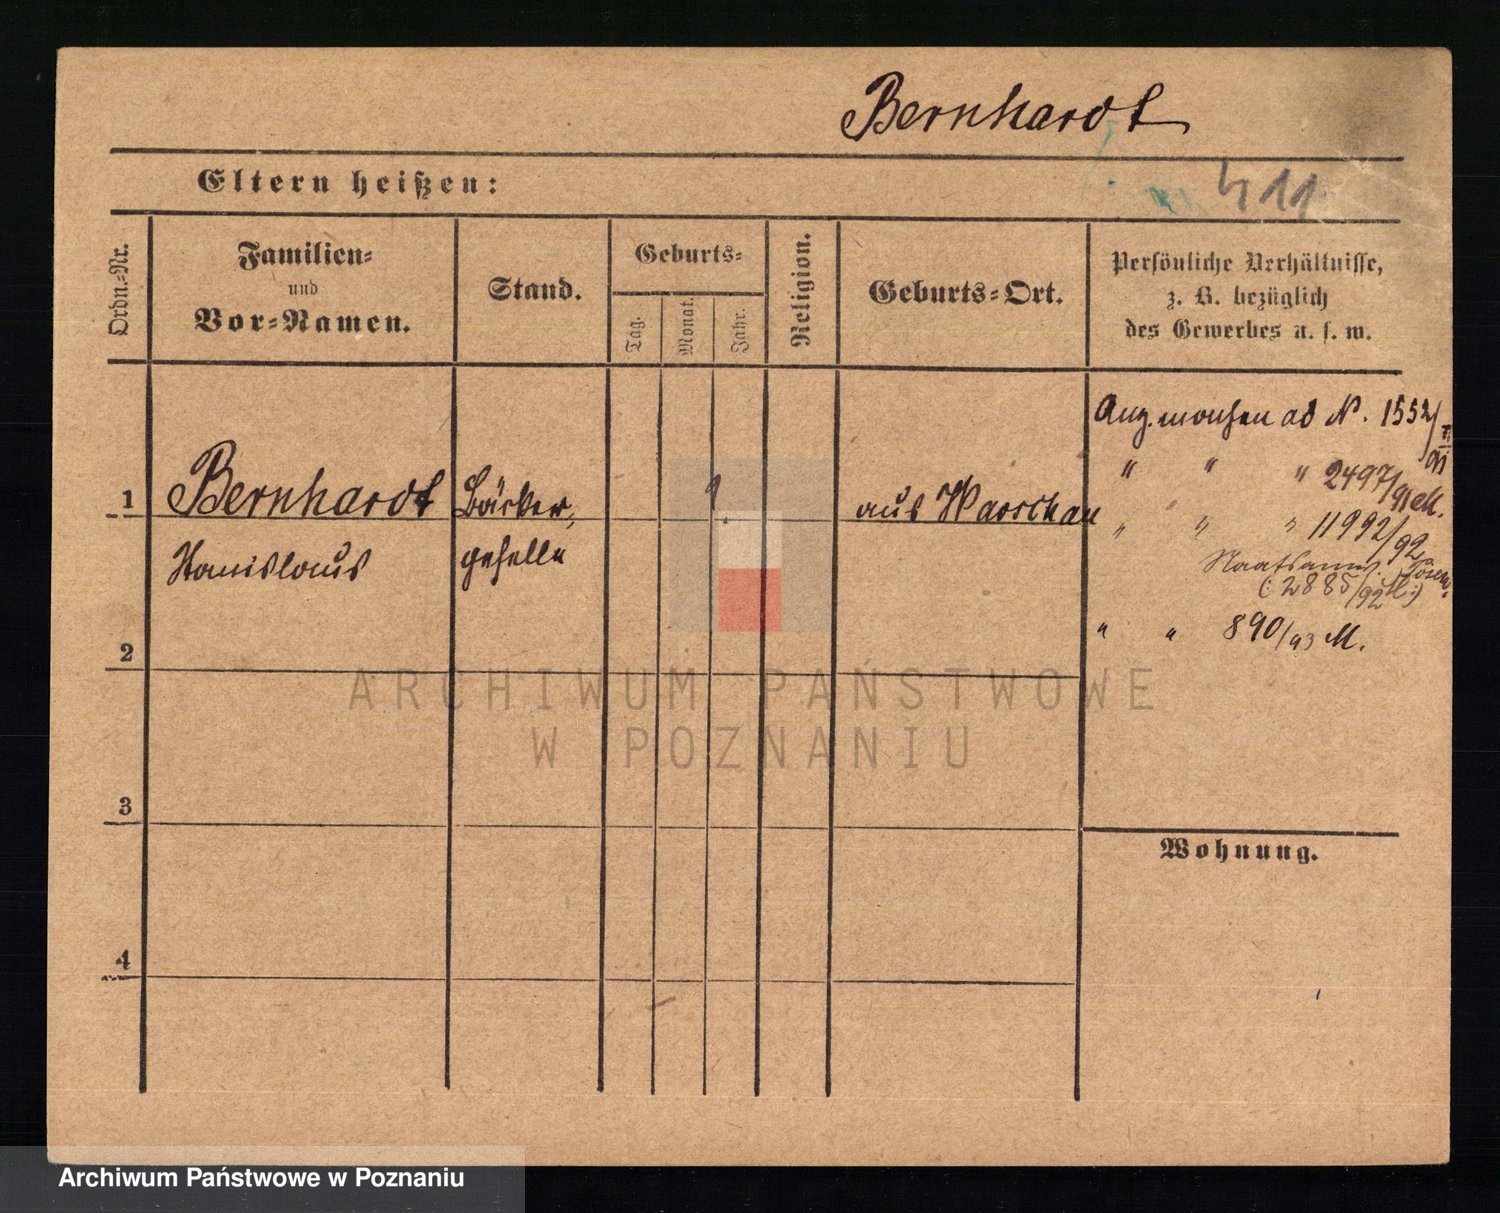 Bernhardt
Eltern heißen:
411
Ordn.-Nr.
Familien-
und
Vor-Namen.
Stand.
Geburts-
Tag.
Monat.
Jahr.
Religion.
Geburts-Ort.
Persönliche Verhältnisse,
z. B. bezüglich
des Gewerbes u. s. w.
1
Bernhardt
Stanislaus
Bäcker,
geselle
?
aus Warschau
ad N. 1552/
" " " 2497/91 M.
" " " 11992/92
Staatsanw.
(: 2885/92 :)
" " 890/93 M.
2
ARCHIWUM PAŃSTWOWE
W POZNANIU
3
Wohnung.
4
Archiwum Państwowe w Poznaniu